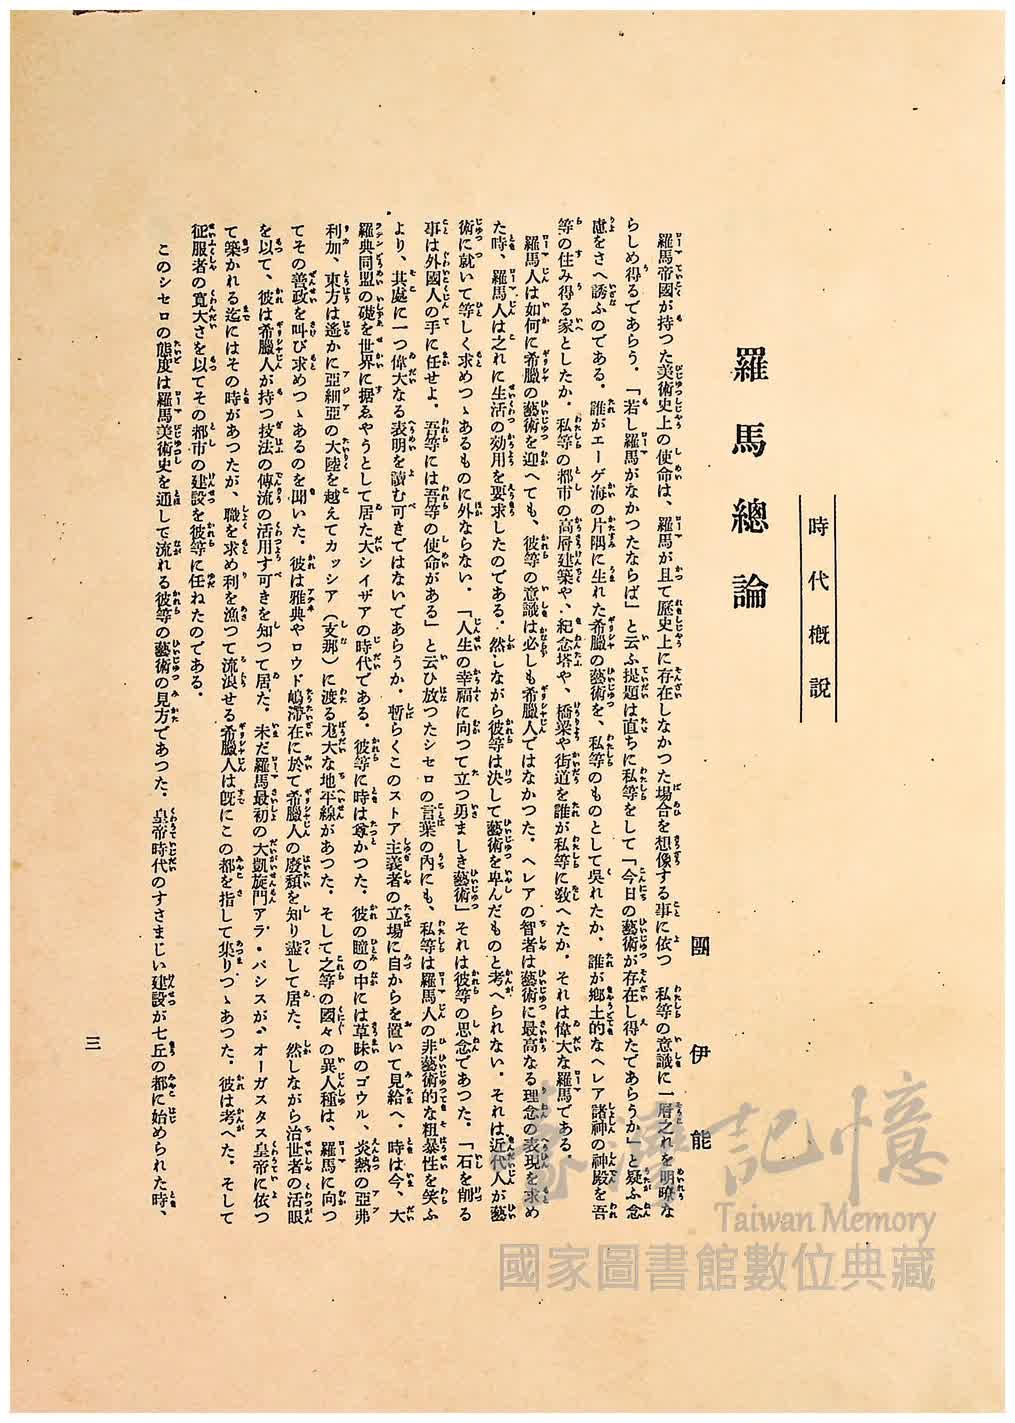 時代槪說
羅馬總論
團伊能
羅馬帝國が持つた美術史上の使命は、羅馬が且て歷史上に存在しなかつた場合を想像する事に依つ 私等の意識に一層之れを明瞭な
らしめ得るであらう。「若し羅馬がなかつたならば」と云ふ提題は直ちに私等をして「今日の藝術が存在し得たであらうか」と疑ふ念
慮をさへ誘ふのである。誰がエーゲ海の片隅に生れた希臘の藝術を、私等のものとして吳れたか。誰が鄕土的なヘレア諸神の神殿を吾
等の住み得る家としたか。私等の都市の高層建築や、紀念塔や、橋梁や街道を誰が私等に敎へたか。それは偉大な羅馬である。
羅馬人は如何に希臘の藝術を迎へても、彼等の意識は必しも希臘人ではなかつた。ヘレアの智者は藝術に最高なる理念の表現を求め
た時、羅馬人は之れに生活の効用を要求したのである。然しながら彼等は決して藝術を卑んだものと考へられない。それは近代人が藝
術に就いて等しく求めつゝあるものに外ならない。「人生の幸福に向つて立つ勇ましき藝術」それは彼等の思念であつた。「石を削る
事は外國人の手に任せよ。吾等には吾等の使命がある」と云ひ放つたシセロの言葉の內にも、私等は羅馬人の非藝術的な粗暴性を笑ふ
より、其處に一つ偉大なる表明を讀む可きではないであらうか。暫らくこのストア主義者の立場に自からを置いて見給へ。時は今、大
羅典同盟の礎を世界に据ゑやうとして居た大シイザアの時代である。彼等に時は尊かつた。彼の瞳の中には草昧のゴウル、炎熱の亞弗
利加、東方は遙かに亞細亞の大陸を越えてカッシア（支那）に渡る尨大な地平線があつた。そして之等の國々の異人種は、羅馬に向つ
てその善政を叫び求めつゝあるのを聞いた。彼は雅典やロウド嶋滯在に於て希臘人の廢頽を知り盡して居た。然しながら治世者の活眼
を以て、彼は希臘人が持つ技法の傳流の活用す可きを知つて居た。未だ羅馬最初の大凱旋門アラ・パシスが、オーガスタス皇帝に依つ
て築かれる迄にはその時があつたが、職を求め利を漁つて流浪せる希臘人は旣にこの都を指して集りつゝあつた。彼は考へた。そして
征服者の寬大さを以てその都市の建設を彼等に任ねたのである。
このシセロの態度は羅馬美術史を通して流れる彼等の藝術の見方であつた。皇帝時代のすさまじい建設が七丘の都に始められた時、
三
臺灣記憶
Taiwan Memory
國家圖書館數位典藏